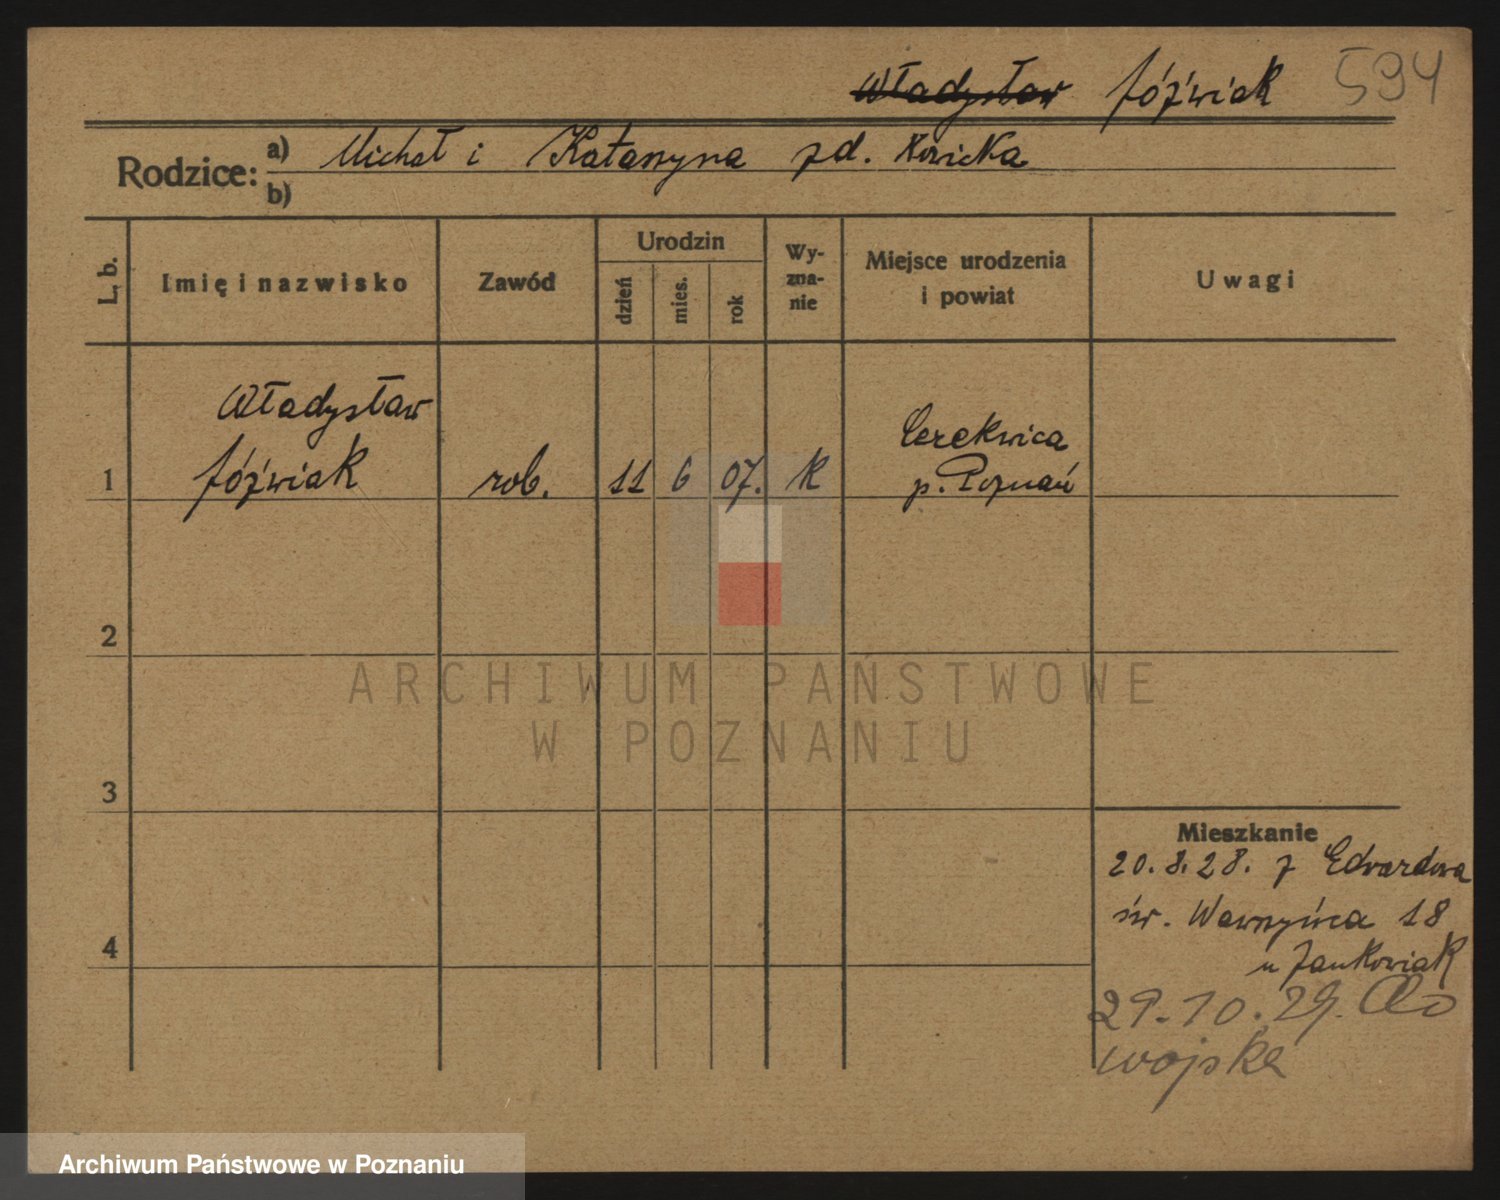 Władysław Jóźwiak 594
Rodzice: a) Michał i Katarzyna zd. Nowicka
b)
L. b. Imię i nazwisko Zawód Urodzin dzień mies. rok Wy-zna-nie Miejsce urodzenia i powiat Uwagi
Władysław Cerekwica
1 Jóźwiak rob. 11 6 07. k p. Poznań
2
3
Mieszkanie
20.8.28. z Edwardowa
św. Wawrzyńca 18
4
u Jankowiak
29.10.29. Do
wojska
ARCHIWUM PAŃSTWOWE
W POZNANIU
Archiwum Państwowe w Poznaniu